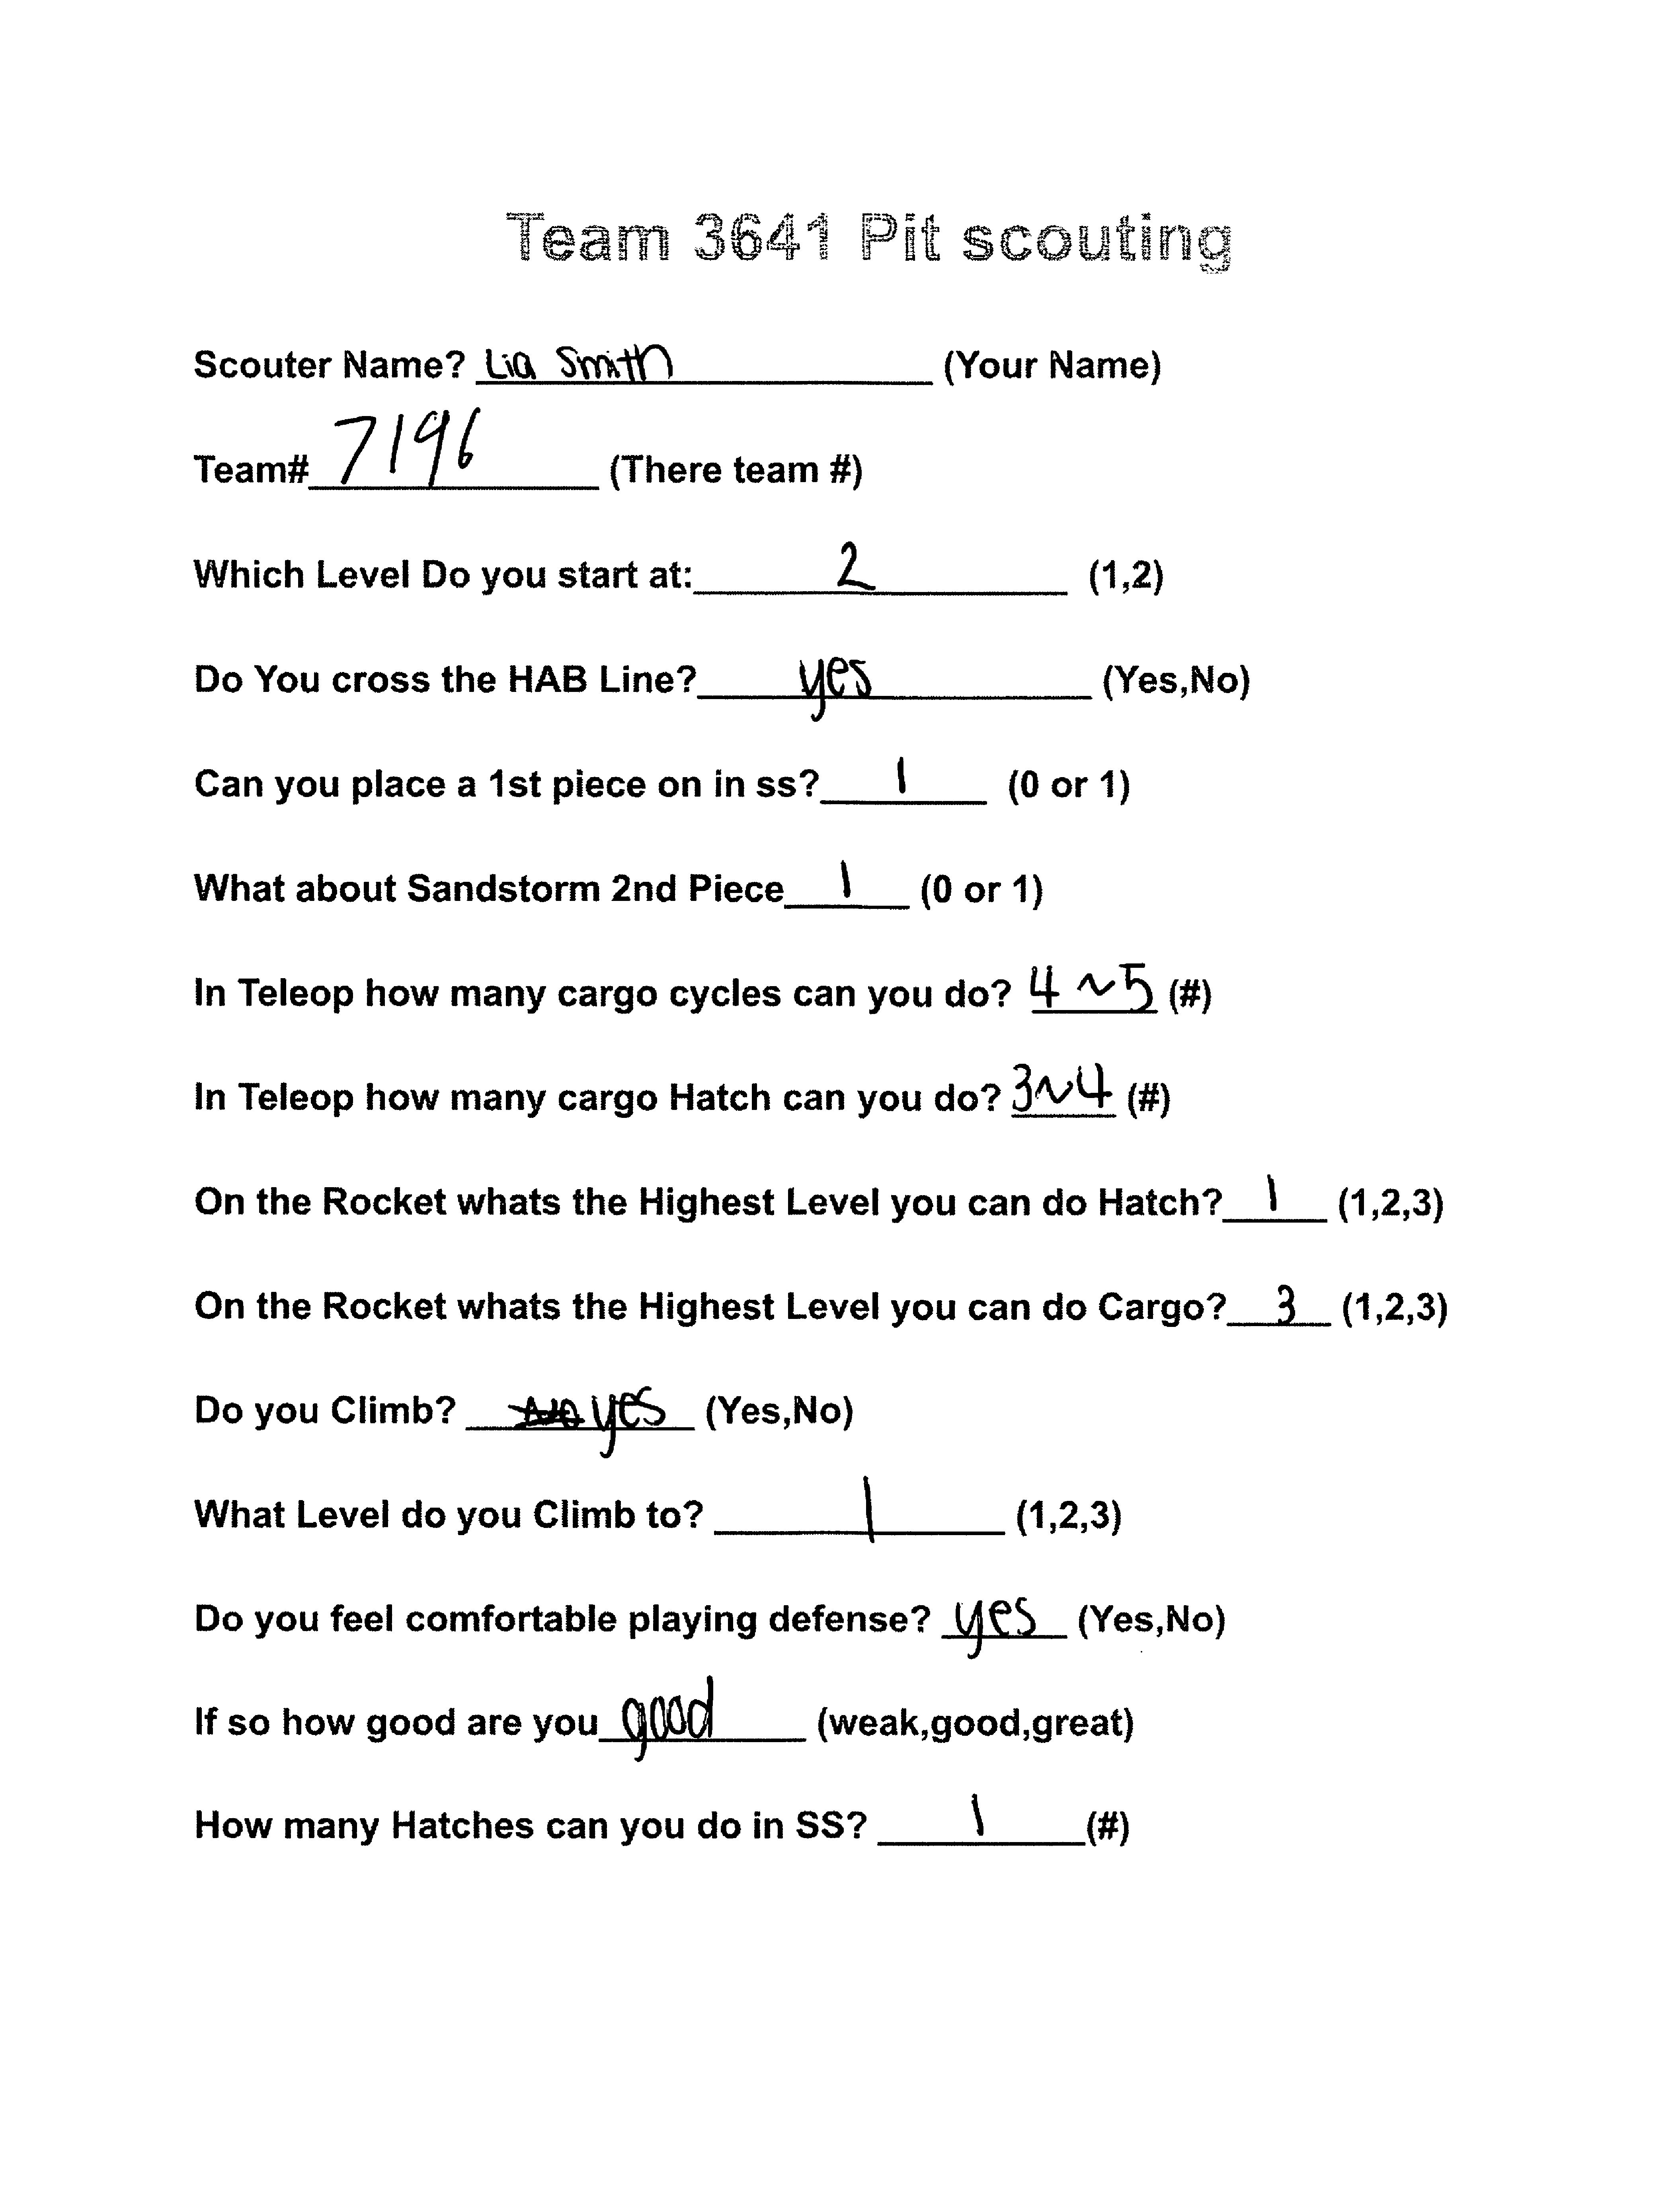 Team 3641 Pit scouting
Scouter Name? Lia Smith (Your Name)
Team# 7196 (There team #)
Which Level Do you start at: 2 (1,2)
Do You cross the HAB Line? yes (Yes,No)
Can you place a 1st piece on in ss? 1 (0 or 1)
What about Sandstorm 2nd Piece 1 (0 or 1)
In Teleop how many cargo cycles can you do? 4 ~ 5 (#)
In Teleop how many cargo Hatch can you do? 3~4 (#)
On the Rocket whats the Highest Level you can do Hatch? 1 (1,2,3)
On the Rocket whats the Highest Level you can do Cargo? 3 (1,2,3)
Do you Climb? yes (Yes,No)
What Level do you Climb to? 1 (1,2,3)
Do you feel comfortable playing defense? yes (Yes,No)
If so how good are you good (weak,good,great)
How many Hatches can you do in SS? 1 (#)